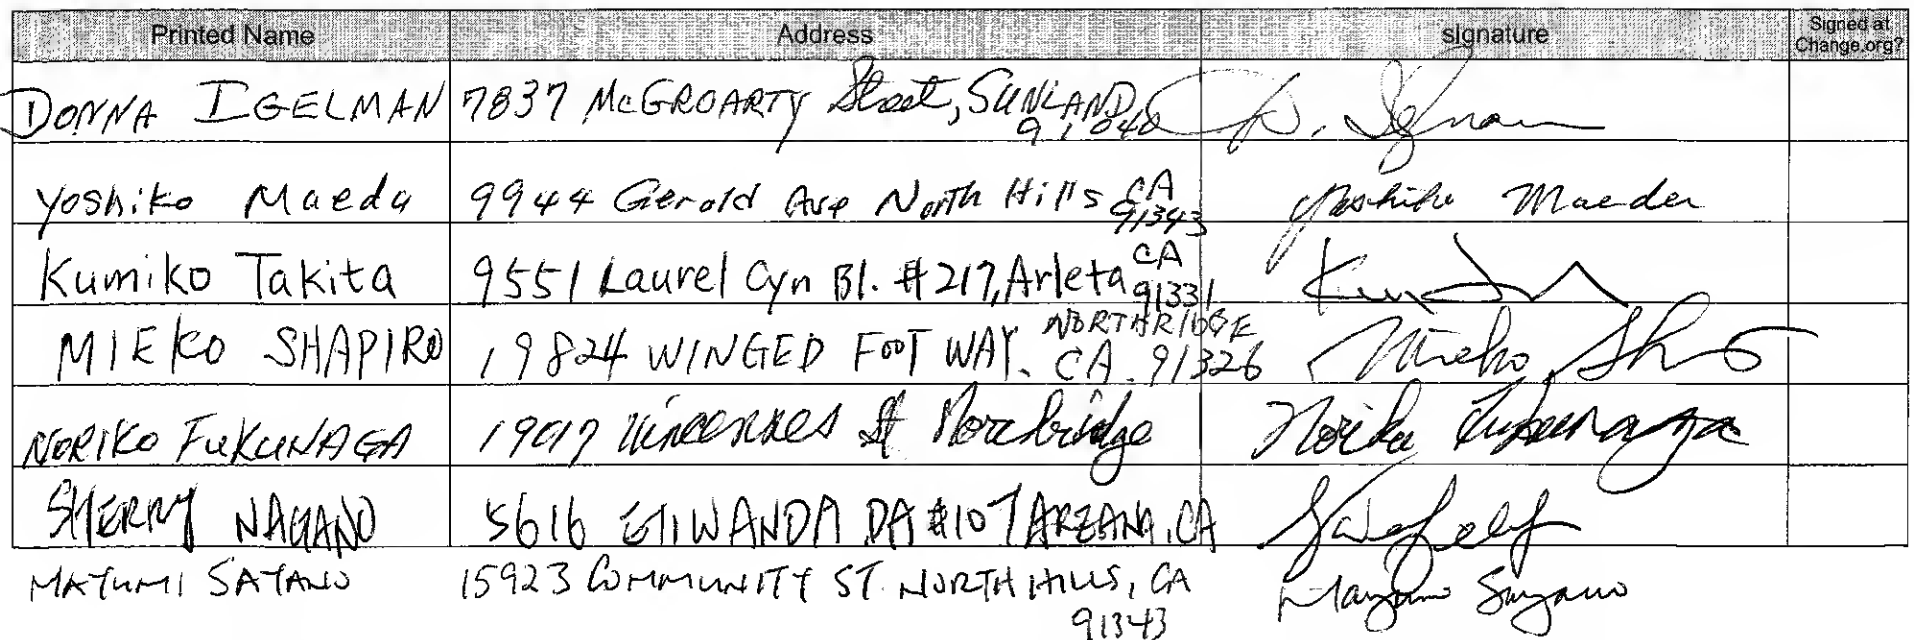 Printed Name Address signature Signed at Change.org?
DONNA IGELMAN 7837 McGROARTY Street, SUNLAND, 91040 D. Igelman
Yoshiko Maeda 9944 Gerald Ave North Hills CA 91343 Yoshiko Maeda
Kumiko Takita 9551 Laurel Cyn Bl. #217, Arleta CA 91331
MIEKO SHAPIRO 19824 WINGED FOOT WAY. NORTHRIDGE CA. 91326 Mieko
NORIKO FUKUNAGA 19017 Vincennes St Northridge Noriko Fukunaga
SHERRY NAGANO 5616 ETIWANDA #107 TARZANA, CA
MAYUMI SAYANO 15923 COMMUNITY ST. NORTH HILLS, CA 91343 Mayumi Sayano